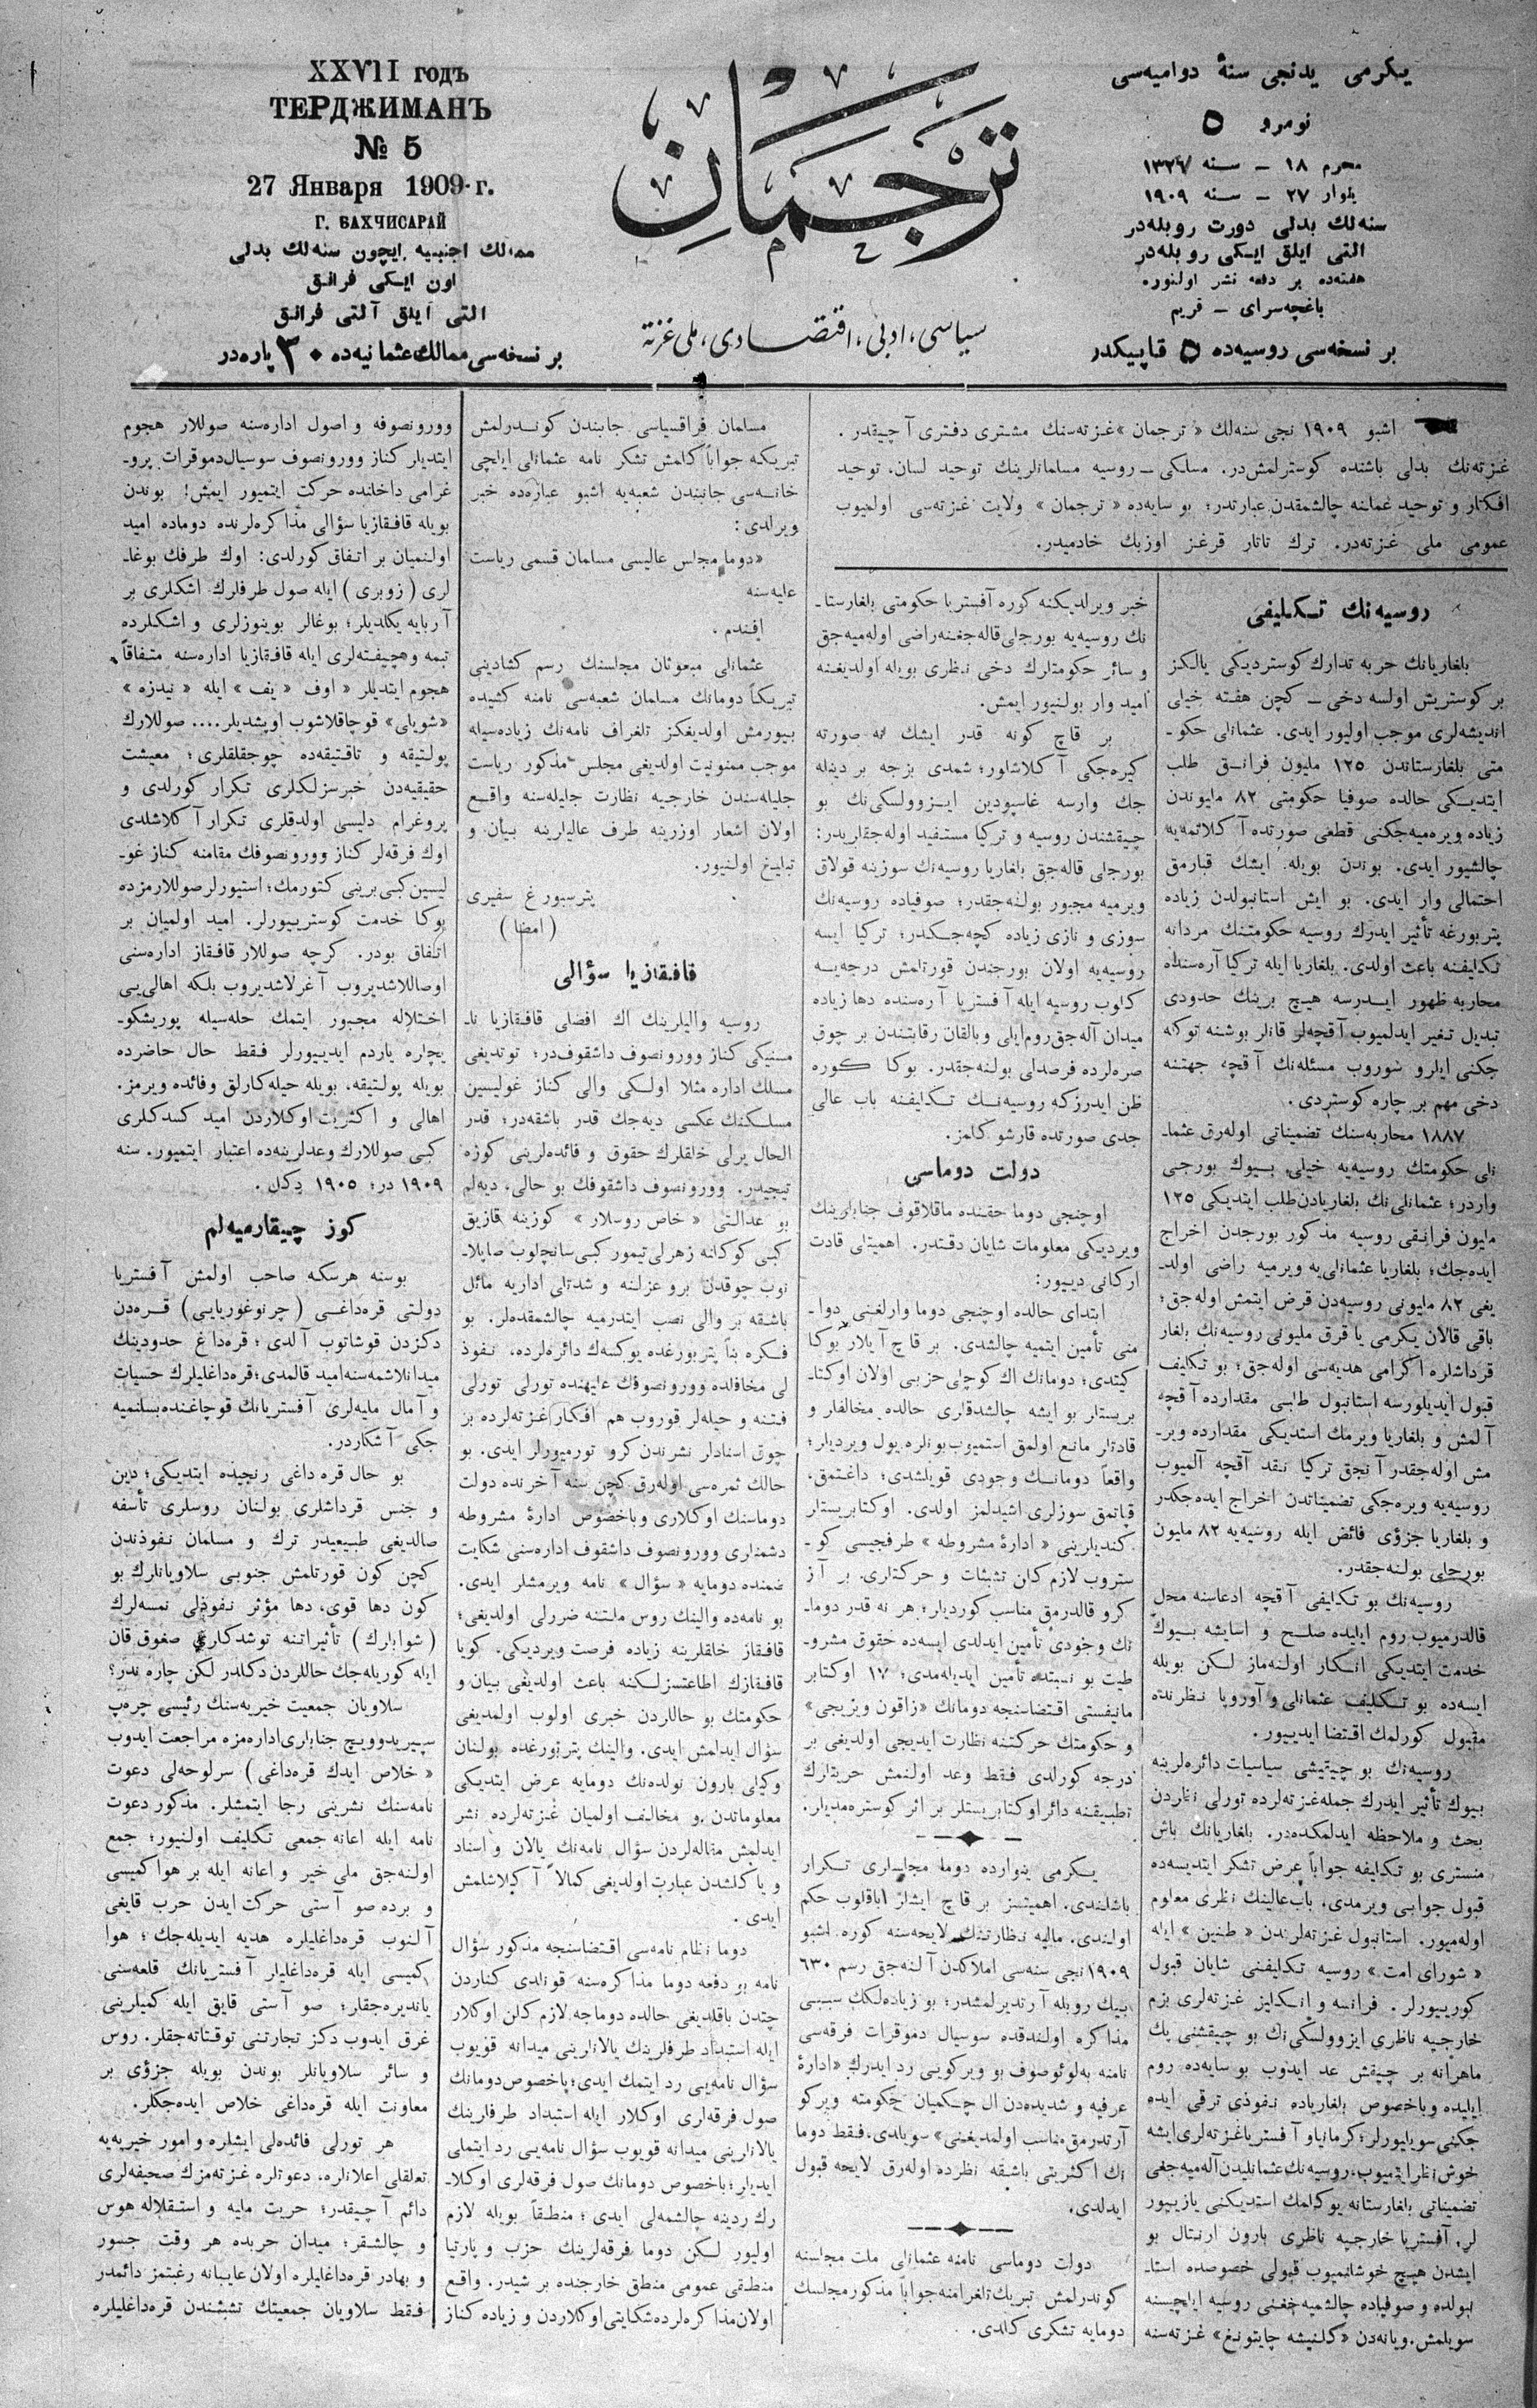 XXVII годъ
ТЕРДЖИМАНЪ
№ 5
27 Января 1909 г.
Г. БАХЧИСАРАЙ
ممالك اجنبیه ایچون سنه‌لك بدلی
اون ایکی فرانق
التی آیلق آلتی فرانق
بر نسخه‌سی ممالك عثمانیه‌ده ۳۰ پاره‌در
ترجمان
سیاسی، ادبی، اقتصادی، ملی غزته
یکرمی یدنجی سنۀ دوامیه‌سی
نومرو ۵
محرم ۱۸ – سنه
ینوار ۲۷ – سنه ۱۹۰۹
سنه‌لك بدلی دورت روبله‌در
التی ایلق ایکی روبله‌در
هفته‌ده بر دفعه نشر اولنور.
باغچه‌سرای – قریم
بر نسخه‌سی روسیه‌ده ۵ قاپیکدر
اشبو ۱۹۰۹ نجی سنه‌لك « ترجمان » غزته‌سنك مشتری دفتری آچیقدر.
غزته‌نك بدلی باشنده كوسترلمش‌در. مسلكی – روسیه مسلمانلرینك توحید لسان، توحید
افكار و توحید عملنه چالشمقدن عبارتدر؛ بو سایه‌ده « ترجمان » ولایت غزته‌سی اولمیوب
عمومی ملی غزته‌در. ترك تاتار قرغز اوزبك خادمیدر.
روسیه‌نك تكلیفی
بلغاریانك حربه تدارك كوستردیكی یالكز
بر كوستریش اولسه دخی – كچن هفته خیلی
اندیشه‌لری موجب اولیور ایدی. عثمانلی حكو-
متی بلغارستاندن ۱۲۵ ملیون فرانق طلب
ایتدیكی حالده صوفیا حكومتی ۸۲ ملیوندن
زیاده ویره‌میه‌جكنی قطعی صورتده آكلاتمه‌یه
چالشیور ایدی. بوندن بویله ایشك قبارمق
احتمالی وار ایدی. بو ایش استانبولدن زیاده
پتربورغه تأثیر ایدرك روسیه حكومتنك مردانه
تكلیفنه باعث اولدی. بلغاریا ایله تركیا آره‌سنده
محاربه ظهور ایدرسه هیچ برینك حدودی
تبدیل تغیر ایدلمیوب آقچه‌لر قانلر بوشنه توكیله
جكنی ایلرو سوروب مسئله‌نك آقچه جهتنه
دخی مهم بر چاره كوستردی.
محاربه‌سنك تضمیناتی اوله‌رق عثما-
نلی حكومتك روسیه‌یه خیلی بیوك بورجی
واردر؛ عثمانلی‌نك بلغاریادن طلب ایتدیكی ۱۲۵
ملیون فرانقی روسیه مذكور بورجدن اخراج
ایده‌جك؛ بلغاریا عثمانلی‌یه ویرمیه راضی اولد-
یغی ۸۲ ملیونی روسیه‌دن قرض ایتمش اوله‌جق؛
باقی قالان یكرمی یا قرق ملیونی روسیه‌نك بلغار
قرداشلره اكرامی هدیه‌سی اوله‌جق؛ بو تكلیف
قبول ایدیلورسه استانبول طلبی مقدارده آقچه
آلمش و بلغاریا ویرمك استدیكی مقدارده ویر-
مش اوله‌جقدر آنجق تركیا نقد آقچه آلمیوب
روسیه‌یه ویره‌جكی تضمیناتدن اخراج ایده‌جكدر
و بلغاریا جزؤی فائض ایله روسیه‌یه ۸۲ ملیون
بورجلی بولنه‌جقدر.
روسیه‌نك بو تكلیفی آقچه ادعاسنه محل
قالدرمیوب روم ایلیده صلح و اسایشه بیوك
خدمت ایتدیكی انكار اولنه‌ماز لكن بویله
ایسه‌ده بو تكلیف عثمانلی و آوروپا نظرنده
مقبول كورلمك اقتضا ایدییور.
روسیه‌نك بو چیقیشی سیاسیات دائره‌لرینه
بیوك تأثیر ایدرك جمله غزته‌لرده تورلی نظردن
بحث و ملاحظه ایدلمكده‌در. بلغاریانك باش
منستری بو تكلیفه جواباً عرض تشكر ایتدیسه‌ده
قبول جوابی ویرمدی. باب‌عالینك نظری معلوم
اوله‌میور. استانبول غزته‌لرندن « طنین » ایله
« شورای امت » روسیه تكلیفنی شایان قبول
كورییورلر. فرانسه و انكلیز غزته‌لری بزم
خارجیه ناظری ایزوولسكی‌نك بو چیقشنی پك
ماهرانه بر چیقش عد ایدوب بو سایه‌ده روم
ایلیده و باخصوص بلغاریاده نفوذی ترقی ایده
جكنی سویلیورلر؛ كرمانیا و آفستریا غزته‌لری ایشه
خوش نظر ایتمیوب، روسیه‌نك عثمانلیدن آله‌میه‌جغی
تضمیناتی بلغارستانه یوكلمك استدیكنی یازییور
لر. آفستریا خارجیه ناظری بارون ارنتال بو
ایشدن هیچ خوشلنمیوب قبولی خصوصده استا-
نبولده و صوفیاده چالشمیه‌جغنی روسیه ایلچیسنه
سویلمش. ویانه‌دن غزته‌سنه
خبر ویرلدیكنه كوره آفستریا حكومتی بلغارستا-
نك روسیه‌یه بورجلی قاله‌جغنه راضی اوله‌میه‌جق
و سائر حكومتلرك دخی نظری بویله اولدیغنه
امید وار بولنیور ایمش.
بر قاچ كونه قدر ایشك نه صورته
كیره‌جكی آكلاشلور؛ شمدی بزجه بر دینیله
جك وارسه غاسپودین ایزوولسكی‌نك بو
چیقشندن روسیه و تركیا مستفید اوله‌جقلریدر:
بورجلی قاله‌جق بلغاریا روسیه‌نك سوزینه قولاق
ویرمیه مجبور بولنه‌جقدر؛ صوفیاده روسیه‌نك
سوزی و نازی زیاده كچه‌جكدر؛ تركیا ایسه
روسیه‌یه اولان بورجندن قورتلمش درجه‌یه
كلوب روسیه ایله آفستریا آره‌سنده دها زیاده
میدان آله‌جق روم‌ایلی و بالقان رقابتندن بر چوق
صره‌لرده فرصدلی بولنه‌جقدر. بوكا كوره
ظن ایدرزكه روسیه‌نك تكلیفنه باب عالی
جدی صورتده قارشو كلمز.
دولت دوماسی
اوچنجی دوما حقنده ماقلاقوف جنابلرینك
ویردیكی معلومات شایان دقتدر. اهمیتلی قادت
اركانی دییور:
ابتدای حالده اوچنجی دوما وارلغنی دوا-
منی تأمین ایتمیه چالشدی. بر قاچ آیلار بوكا
كیتدی؛ دومانك اك كوچلی حزبی اولان اوكتا-
بریستلر بو ایشه چالشدقلری حالده مخالفلر و
قادتلر مانع اولمق استمیوب بونلره یول ویردیلر؛
واقعاً دومانك وجودی قویلشدی؛ داغتمق،
قاپاتمق سوزلری اشیدلمز اولدی. اوكتابریستلر
كندیلرینی « ادارۀ مشروطه » طرفجیسی كو-
ستروب لازم كلن تشبثات و حركتلری بر آز
كرو قالدرمق مناسب كوردیلر؛ هر نه قدر دوما-
نك وجودی تأمین ایدلدی ایسه‌ده حقوق مشرو-
طیت بو نسبتده تأمین ایدیله‌مدی؛ ۱۷ اوكتابر
مانیفستی اقتضاسنجه دومانك «زاقون ویزیجی»
و حكومتك حركتنه نظارت ایدیجی اولدیغی بر
درجه كورلدی فقط وعد اولنمش حریتلرك
تطبیقنه دائر اوكتابریستلر بر اثر كوستره‌مدیلر.
یكرمی ینوارده دوما مجلسلری تكرار
باشلندی. اهمیتسز بر قاچ ایشلر باقلوب حكم
اولندی. مالیه نظارتنك لایحه‌سنه كوره اشبو
۱۹۰۹ نجی سنه‌سی املاكدن آلنه‌جق رسم ۶۳۰
بیك روبله آرتدیرلمشدر؛ بو زیاده‌لكك سببی
مذاكره اولندقده سوسیال دموقرات فرقه‌سی
نامنه به‌لوئوصوف بو ویركویی رد ایدرك «ادارۀ
عرفیه و شدیده‌دن ال چكمیان حكومته ویركو
آرتدرمق مناسب اولمدیغنی» سویلدی. فقط دوما
نك اكثریتی باشقه نظرده اوله‌رق لایحه قبول
ایدلدی.
دولت دوماسی نامنه عثمانلی ملت مجلسنه
كوندرلمش تبریك تلغرامنه جواباً مذكور مجلسك
دومایه تشكری كلدی.
مسلمان فراقسیاسی جانبندن كوندرلمش
تبریكه جواباً كلمش تشكر نامه عثمانلی ایلچی
خانه‌سی جانبندن شعبه‌یه اشبو عباره‌ده خبر
ویرلدی:
«دوما مجلس عالیسی مسلمان قسمی ریاست
علیه‌سنه
افندم.
عثمانلی مبعوثان مجلسنك رسم كشادینی
تبریكاً دومانك مسلمان شعبه‌سی نامنه كشیده
بیورمش اولدیغكز تلغراف نامه‌نك زیاده‌سیله
موجب ممنونیت اولدیغی مجلس مذكور ریاست
جلیله‌سندن خارجیه نظارت جلیله‌سنه واقع
اولان اشعار اوزرینه طرف عالیلرینه بیان و
تبلیغ اولنیور.
پترسبورغ سفیری
(امضا)
قافقازیا سؤالی
روسیه والیلرینك اك افضلی قافقازیا نا-
مسنیكی كناز وورونصوف داشقوف‌در؛ توتدیغی
مسلك اداره مثلا اولكی والی كناز غولیسین
مسلكنك عكسی دیه‌جك قدر باشقه‌در؛ قدر
الحال یرلی خلقلرك حقوق و فائده‌لرینی كوزه
تیجیدر. وورونصوف داشقوفك بو حالی، دیه‌لم
بو عدالتی « خاص روسلار » كوزینه قازیق
كبی كوكلنه زهرلی تیمور كبی سانچلوب صاپلا-
نوب چوقدن برو عزلنه و شدتلی اداریه مائل
باشقه بر والی نصب ایتدرمیه چالشمقده‌لر. بو
فكره بناً پتربورغده یوكسك دائره‌لرده، نفوذ
لی محافلده وورونصوفك علیهنده تورلی تورلی
فتنه و حیله‌لر قوروب هم افكار غزته‌لرده بر
چوق اسنادلر نشرندن كرو تورمیورلر ایدی. بو
حالك ثمره‌سی اوله‌رق كچن سنه آخرنده دولت
دوماسنك اوكلاری و باخصوص ادارۀ مشروطه
دشمنلری وورونصوف داشقوف اداره‌سنی شكایت
ضمننده دومایه « سؤال » نامه ویرمشلر ایدی.
بو نامه‌ده والینك روس ملتنه ضررلی اولدیغی؛
قافقاز خلقلرینه زیاده فرصت ویردیكی. كویا
قافقازك اطاعتسزلكنه باعث اولدیغی بیان و
حكومتك بو حاللردن خبری اولوب اولمدیغی
سؤال ایدلمش ایدی. والینك پتربورغده بولنان
وكیلی بارون نولده‌نك دومایه عرض ایتدیكی
معلوماتدن و مخالف اولمیان غزته‌لرده نشر
ایدلمش مقاله‌لردن سؤال نامه‌نك یالان و اسناد
و یاكلشدن عبارت اولدیغی كمالاً آكلاشلمش
ایدی.
دوما نظام نامه‌سی اقتضاسنجه مذكور سؤال
نامه بو دفعه دوما مذاكره‌سنه قونلدی كناردن
چتدن باقلدیغی حالده دوماجه لازم كلن اوكلار
ایله استبداد طرفلرینك یالانلرینی میدانه قویوب
سؤال نامه‌یی رد ایتمك ایدی؛ باخصوص دومانك
صول فرقه‌لری اوكلار ایله استبداد طرفلرینك
یالانلرینی میدانه قویوب سؤال نامه‌یی رد ایتملی
ایدیلر؛ باخصوص دومانك صول فرقه‌لری اوكلا-
رك ردینه چالشمه‌لی ایدی؛ منطقاً بویله لازم
اولیور لكن دوما فرقه‌لرینك حزب و پارتیا
منطقی عمومی منطق خارجنده بر شیدر. واقع
اولان مذاكره‌لرده شكایتی اوكلاردن و زیاده كناز
وورونصوفه و اصول اداره‌سنه صوللار هجوم
ایتدیلر كناز وورونصوف سوسیال دموقرات پرو-
غرامی داخلنده حركت ایتمیور ایمش! بوندن
بویله قافقازیا سؤالی مذاكره‌لرنده دوماده امید
اولنمیان بر اتفاق كورلدی: اوك طرفك بوغا-
لری (زوبری) ایله صول طرفلرك اشكلری بر
آرابایه یكلدیلر؛ بوغالر بوینوزلری و اشكلرده
تپمه و چیفته‌لری ایله قافقازیا اداره‌سنه متفقاً
هجوم ایتدیلر « اوف « یف » ایله « نیدزه »
«شویلی» قوچاقلاشوب اوپشدیلر.... صوللارك
پولتیقه و تاقتیقه‌ده چوجقلقلری؛ معیشت
حقیقیه‌دن خبرسزلكلری تكرار كورلدی و
پروغرام دلیسی اولدقلری تكرار آكلاشلدی
اوك فرقه‌لر كناز وورونصوفك مقامنه كناز غو-
لیسین كبی برینی كتورمك؛ استیورلر صوللارمزده
بوكا خدمت كوستریییورلر. امید اولمیان بر
اتفاق بودر. كرچه صوللار قافقاز اداره‌سنی
اوصاللاشدیروب آغرلاشدیروب بلكه اهالی‌یی
اختلاله مجبور ایتمك حله‌سیله پوریشكو-
یچلره یاردم ایدییورلر فقط حال حاضرده
بویله پولتیقه، بویله حیله‌كارلق وفائده ویرمز.
اهالی و اكثریت اوكلاردن امید كسدكلری
كبی صوللارك وعدلرینه‌ده اعتبار ایتمیور. سنه
۱۹۰۹ در؛ ۱۹۰۵ دكل.
كوز چیقارمیه‌لم
بوسنه هرسكه صاحب اولمش آفستریا
دولتی قره‌داغی (چرنوغوریایی) قره‌دن
دكزدن قوشاتوب آلدی؛ قره‌داغ حدودینك
میدانلاشمه‌سنه امید قالمدی؛ قره‌داغلیلرك حسیات
و آمال ملیه‌لری آفستریانك قوچاغنده بسلنمیه
جكی آشكاردر.
بو حال قره‌داغی رنجیده ایتدیكی؛ دین
و جنس قرداشلری بولنان روسلری تأسفه
صالدیغی طبیعیدر ترك و مسلمان نفوذندن
كچن كون قورتلمش جنوبی سلاویانلرك بو
كون دها قوی، دها مؤثر نفوذلی نمسه‌لرك
(شوابلرك) تأثیراتنه توشدكلری صغوق قان
ایله كوریله‌جك حاللردن دكلدر لكن چاره ندر؟
سلاویان جمعیت خیریه‌سنك رئیسی چره‌پ
سپیریدوویچ جنابلری اداره‌مزه مراجعت ایدوب
« خلاص ایدك قره‌داغی ) سرلوحه‌لی دعوت
نامه‌سنك نشرینی رجا ایتمشلر. مذكور دعوت
نامه ایله اعانه جمعی تكلیف اولنیور؛ جمع
اولنه‌جق ملی خیر و اعانه ایله بر هوا كمیسی
و برده صو آستی حركت ایدن حرب قایغی
آلنوب قره‌داغلیلره هدیه ایدیله‌جك؛ هوا
كمیسی ایله قره‌داغلیلر آفستریانك قلعه‌سنی
یاندیره‌جقلر؛ صو آستی قایق ایله كمیلرینی
غرق ایدوب دكز تجارتنی توقتاته‌جقلر. روس
و سائر سلاویانلر بوندن بویله جزؤی بر
معاونت ایله قره‌داغی خلاص ایده‌جكلر.
هر تورلی فائده‌لی ایشلره و امور خیریه‌یه
تعلقلی اعلانلره، دعوتلره غزته‌مزك صحیفه‌لری
دائم آچیقدر؛ حریت ملیه و استقلاله هوس
و چالشقر؛ میدان حربده هر وقت جسور
و بهادر قره‌داغلیلره اولان عایبانه رغبتمز دائمدر
فقط سلاویان جمعیتك تشبثندن قره‌داغلیلره